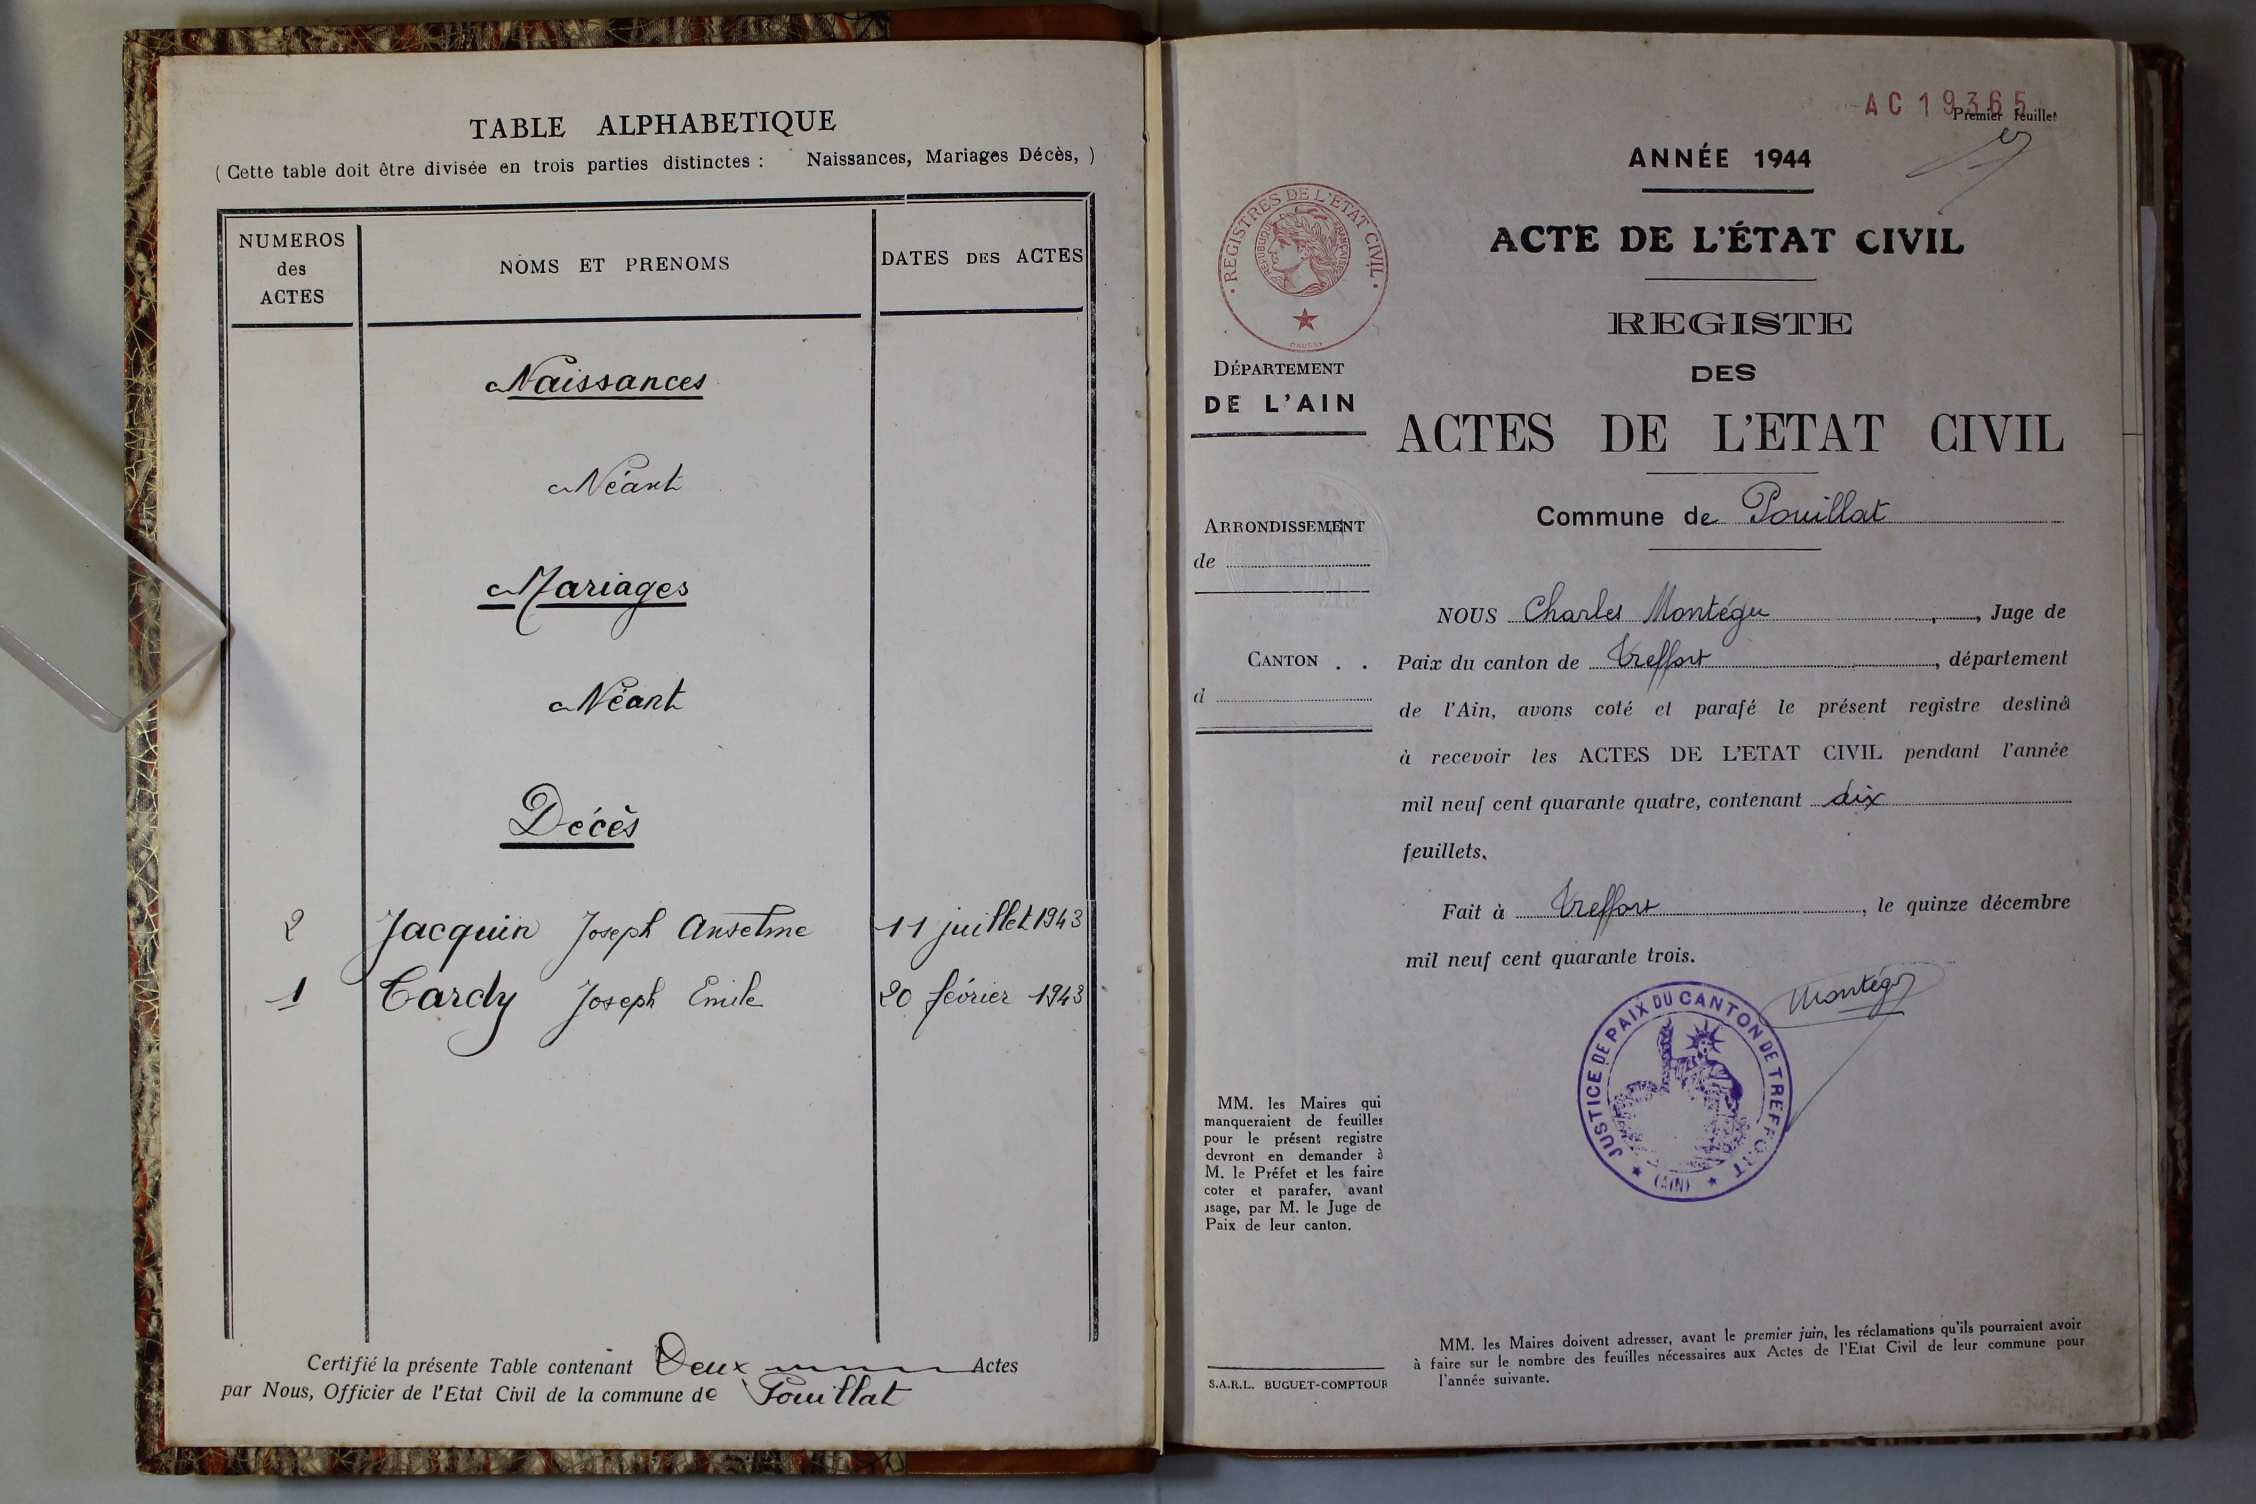 TABLE ALPHABETIQUE
( Cette table doit être divisée en trois parties distinctes : Naissances, Mariages Décès, )
NUMEROS
des
ACTES
NOMS ET PRENOMS
DATES DES ACTES
Naissances
Néant
Mariages
Néant
Décès
2 Jacquin Joseph Anselme 11 juillet 1943
1 Cardy Joseph Emile 20 février 1943
Certifié la présente Table contenant Deux Actes
par Nous, Officier de l'Etat Civil de la commune de Pouillat
AC 19365
Premier feuillet
ANNÉE 1944
ACTE DE L'ÉTAT CIVIL
REGISTE
DES
ACTES DE L'ETAT CIVIL
Commune de Pouillat
• REGISTRES DE L'ETAT CIVIL •
REPUBLIQUE FRANÇAISE
DÉPARTEMENT
DE L'AIN
ARRONDISSEMENT
de
CANTON . .
d
NOUS Charles Montégu, Juge de
Paix du canton de Treffort, département
de l'Ain, avons coté et parafé le présent registre destiné
à recevoir les ACTES DE L'ETAT CIVIL pendant l'année
mil neuf cent quarante quatre, contenant dix
feuillets.
Fait à Treffort, le quinze décembre
mil neuf cent quarante trois.
Montégu
JUSTICE DE PAIX DU CANTON DE TREFFORT
(AIN)
MM. les Maires qui
manqueraient de feuilles
pour le présent registre
devront en demander à
M. le Préfet et les faire
coter et parafer, avant
usage, par M. le Juge de
Paix de leur canton.
S.A.R.L. BUGUET-COMPTOUR
MM. les Maires doivent adresser, avant le premier juin, les réclamations qu'ils pourraient avoir
à faire sur le nombre des feuilles nécessaires aux Actes de l'Etat Civil de leur commune pour
l'année suivante.